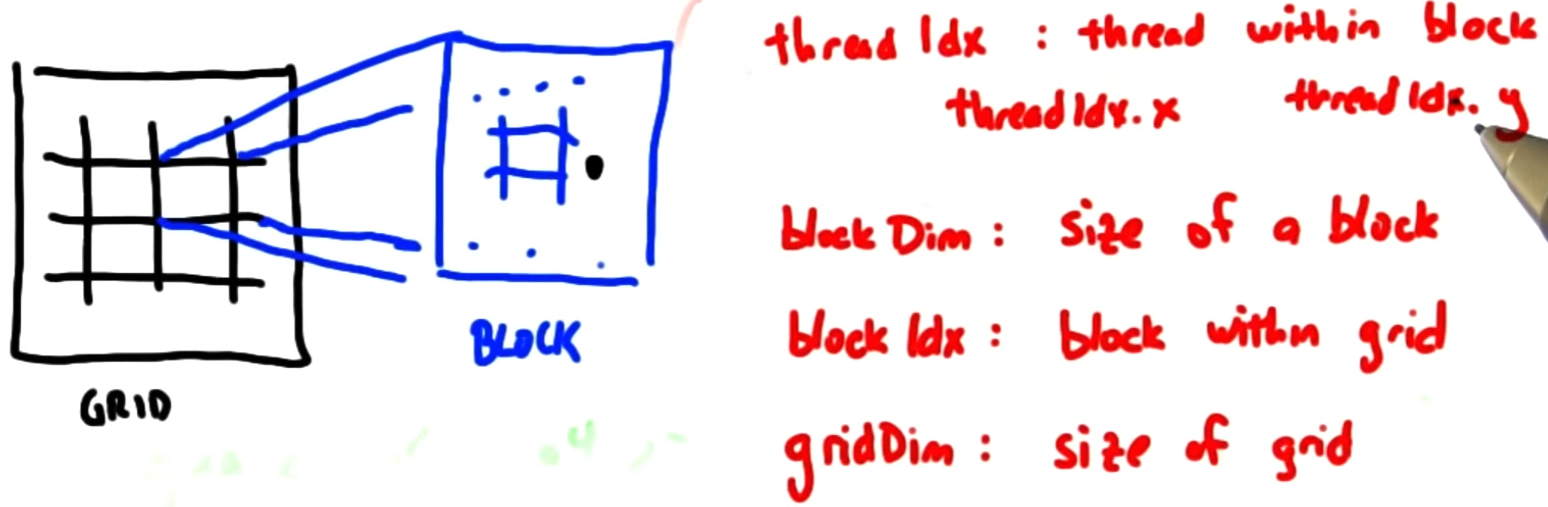 thread Idx : thread within block
threadIdx.x threadIdx.y
block Dim : size of a block
block Idx : block within grid
gridDim : size of grid
BLOCK
GRID